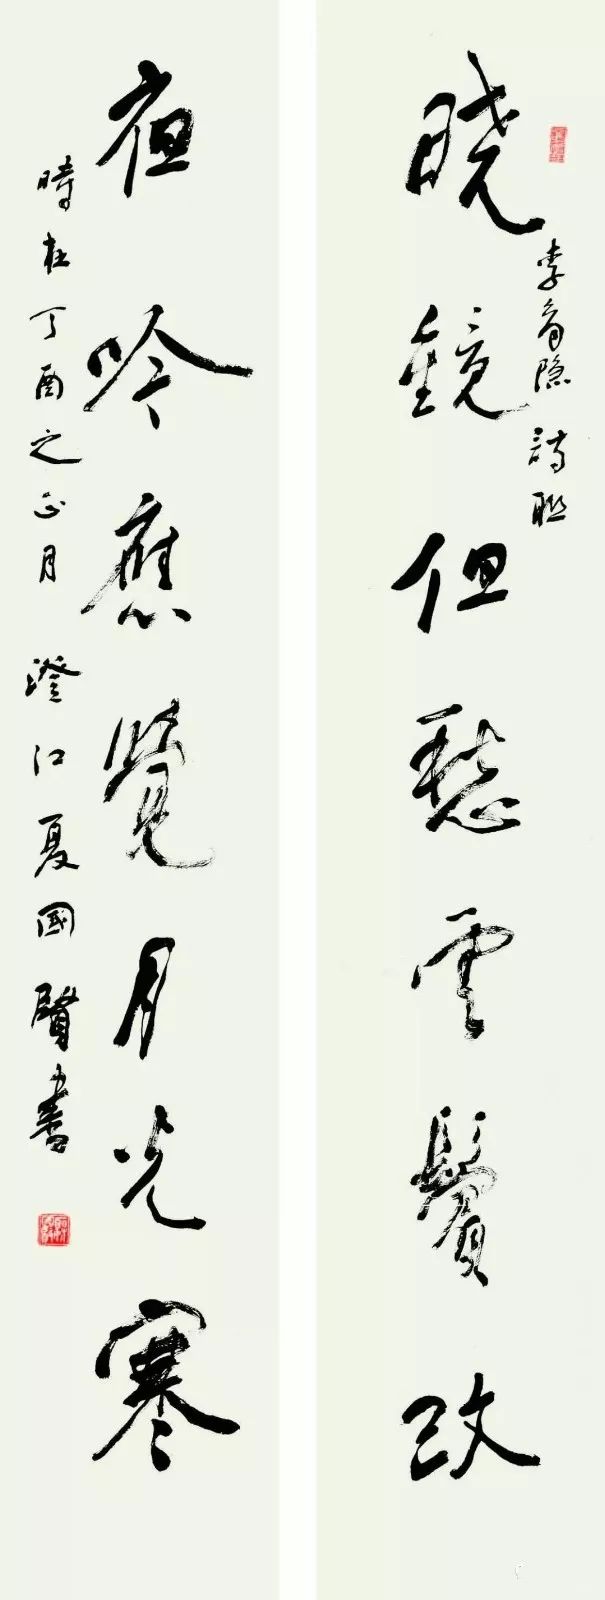 李商隐詩联
晓鏡但愁雲鬢改
夜吟應覺月光寒
時在丁酉之正月 澄江夏國賢書